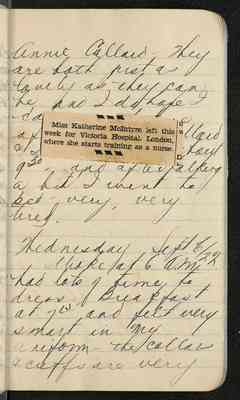 Annie Pollard. They
are both just as
lovely as they can
be, and I do hope I
Miss Katherine McIntyre left this
week for Victoria Hospital, London,
where she starts training as a nurse.
9.30 and after talking
a bit I went to
bed very, very
tired.
Wednesday Sept 6/22
I woke at 6 A.M.
had lots of time to
dress & Breakfast
at 7 and felt very
smart in my
uniform - the collar
& cuffs are very